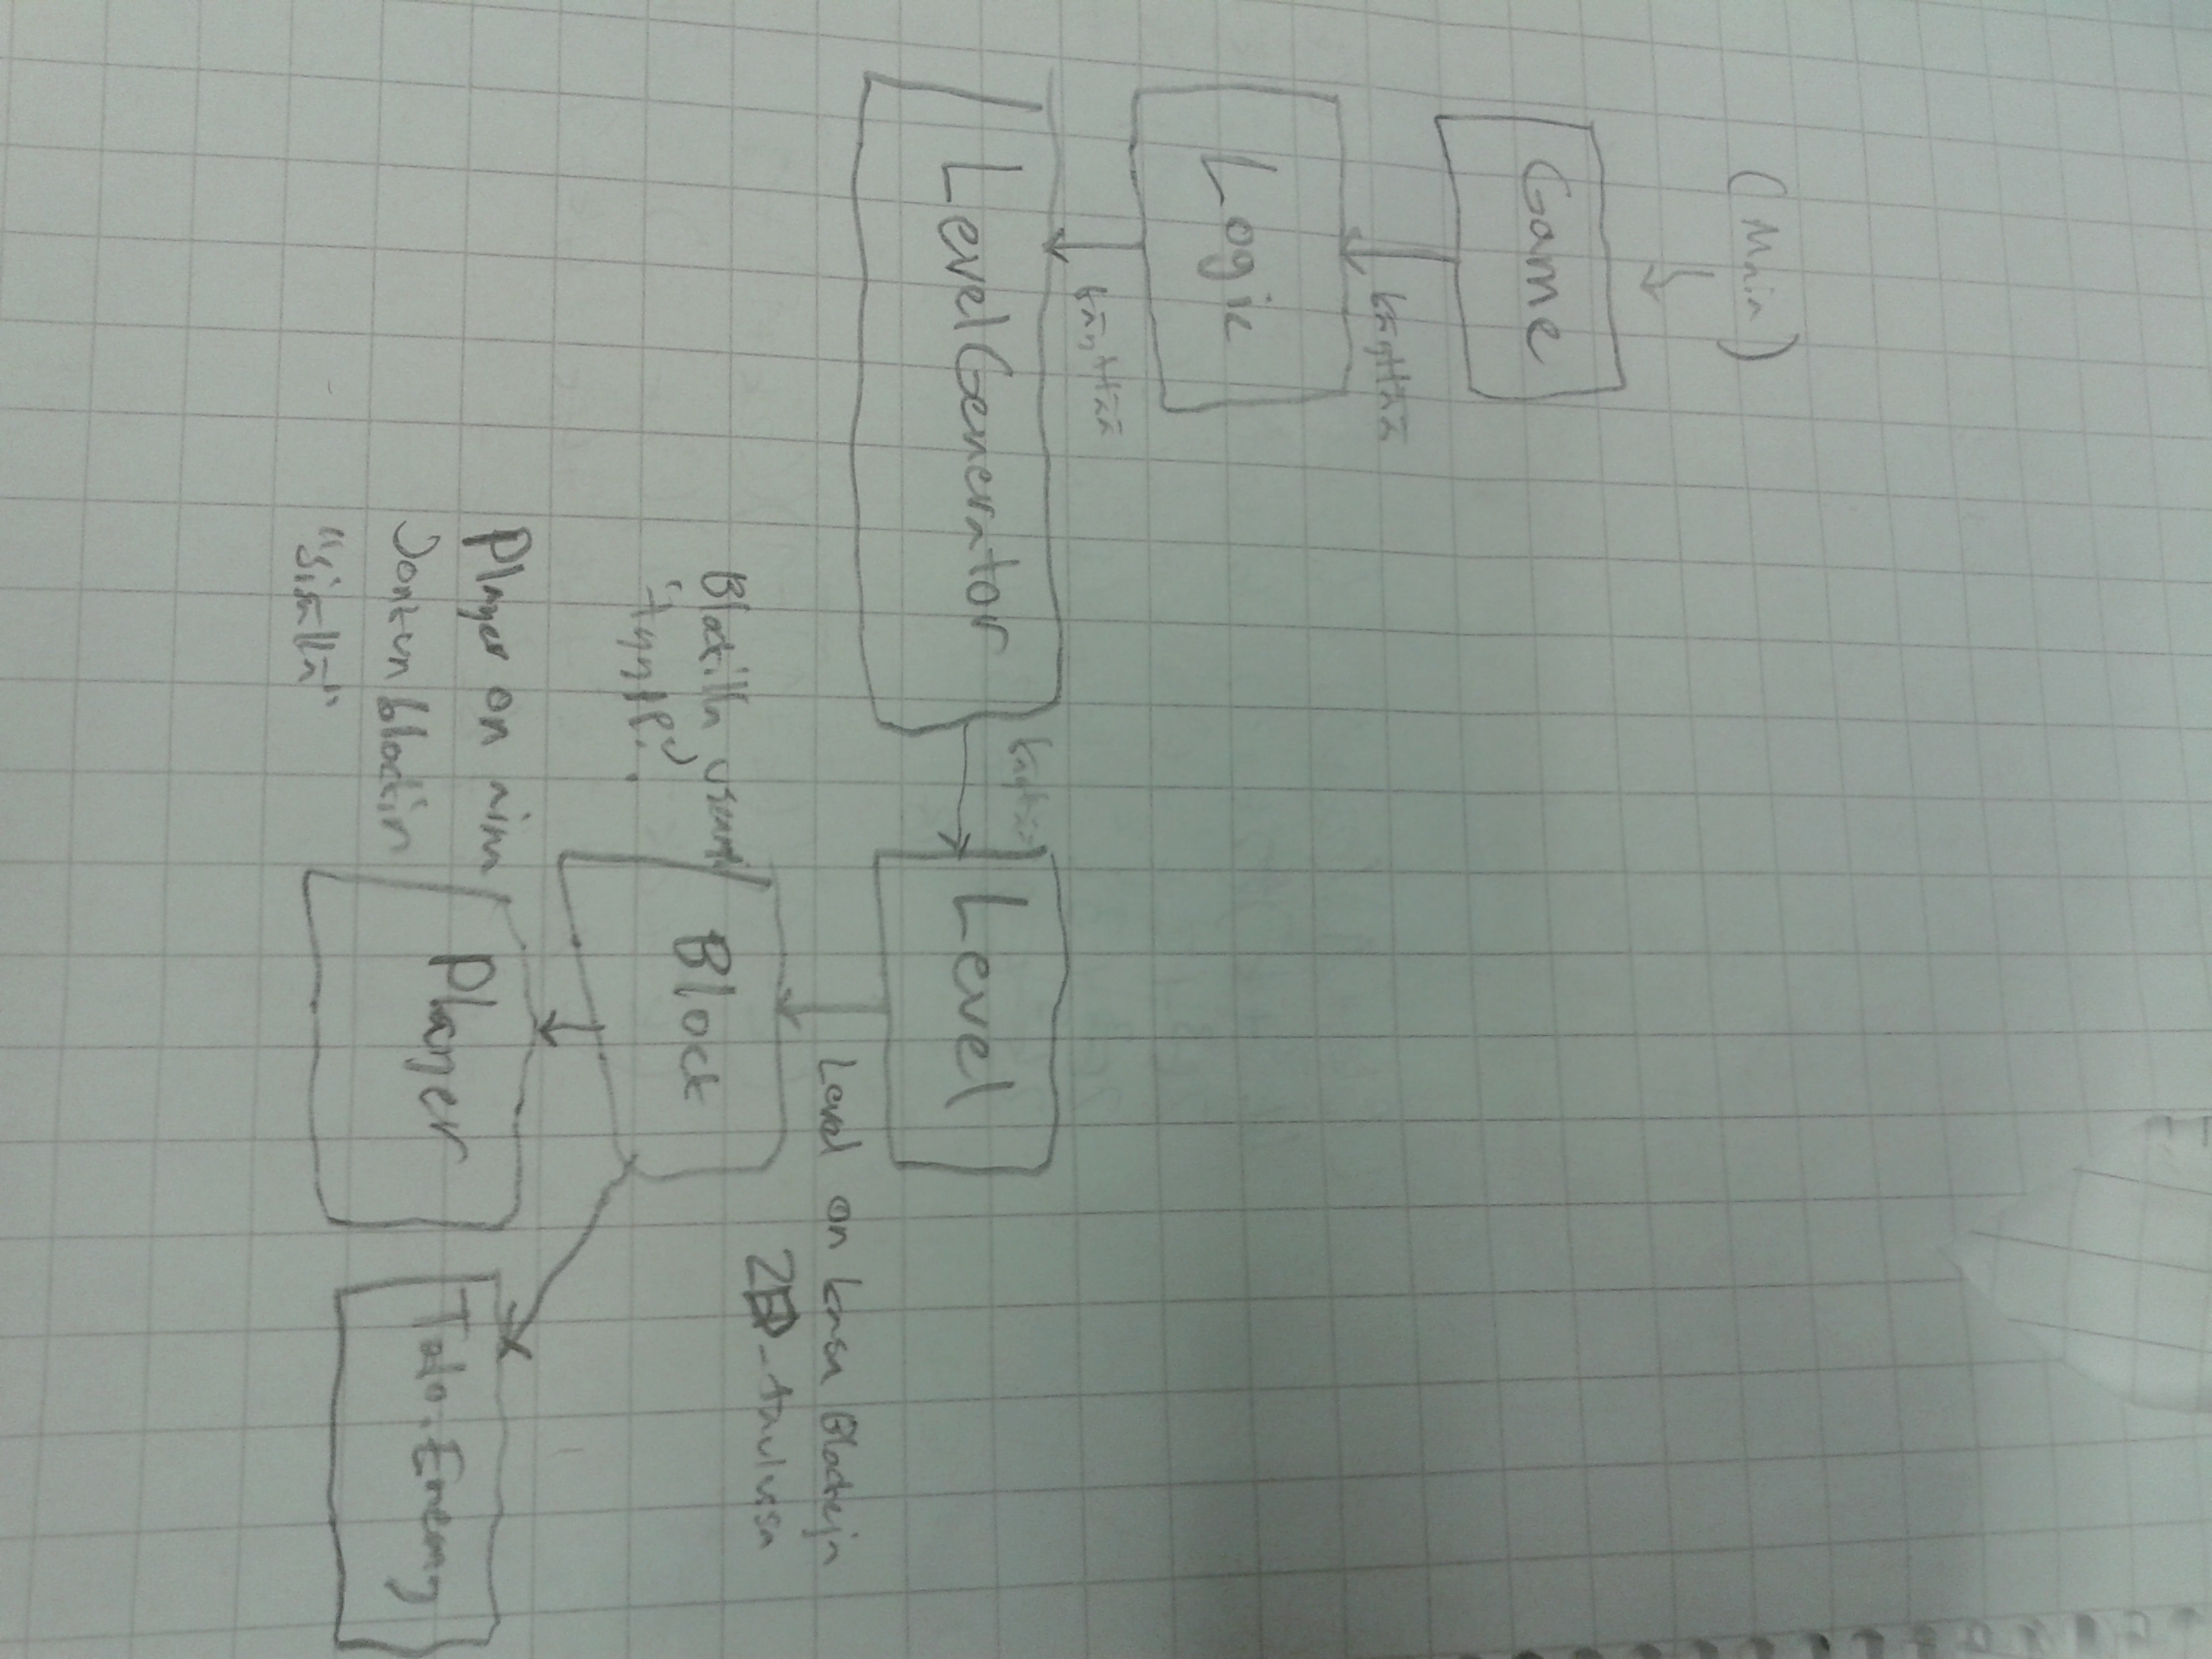 (Main)
Game
käyttää
Logic
käyttää
LevelGenerator
käyttää
Level
Level on kasa Blockeja
2D-taulussa
Blockilla useampi
Block
Player on aina
Jonkun blockin
"sisällä"
Player
Todo: Enemy